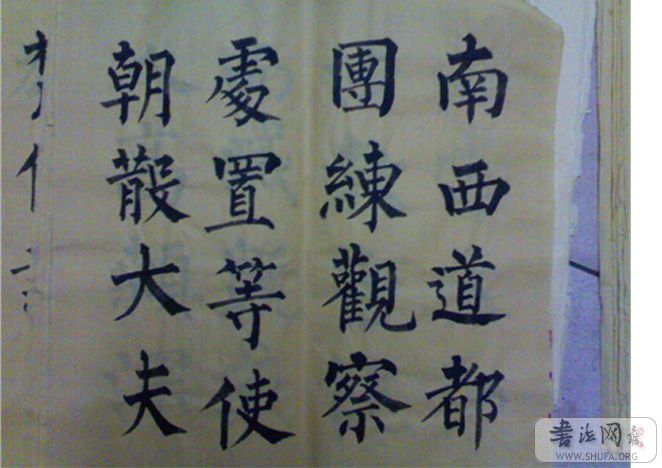 南西道都
團練觀察
處置等使
朝散大夫
書法网
WWW.SHUFA.ORG